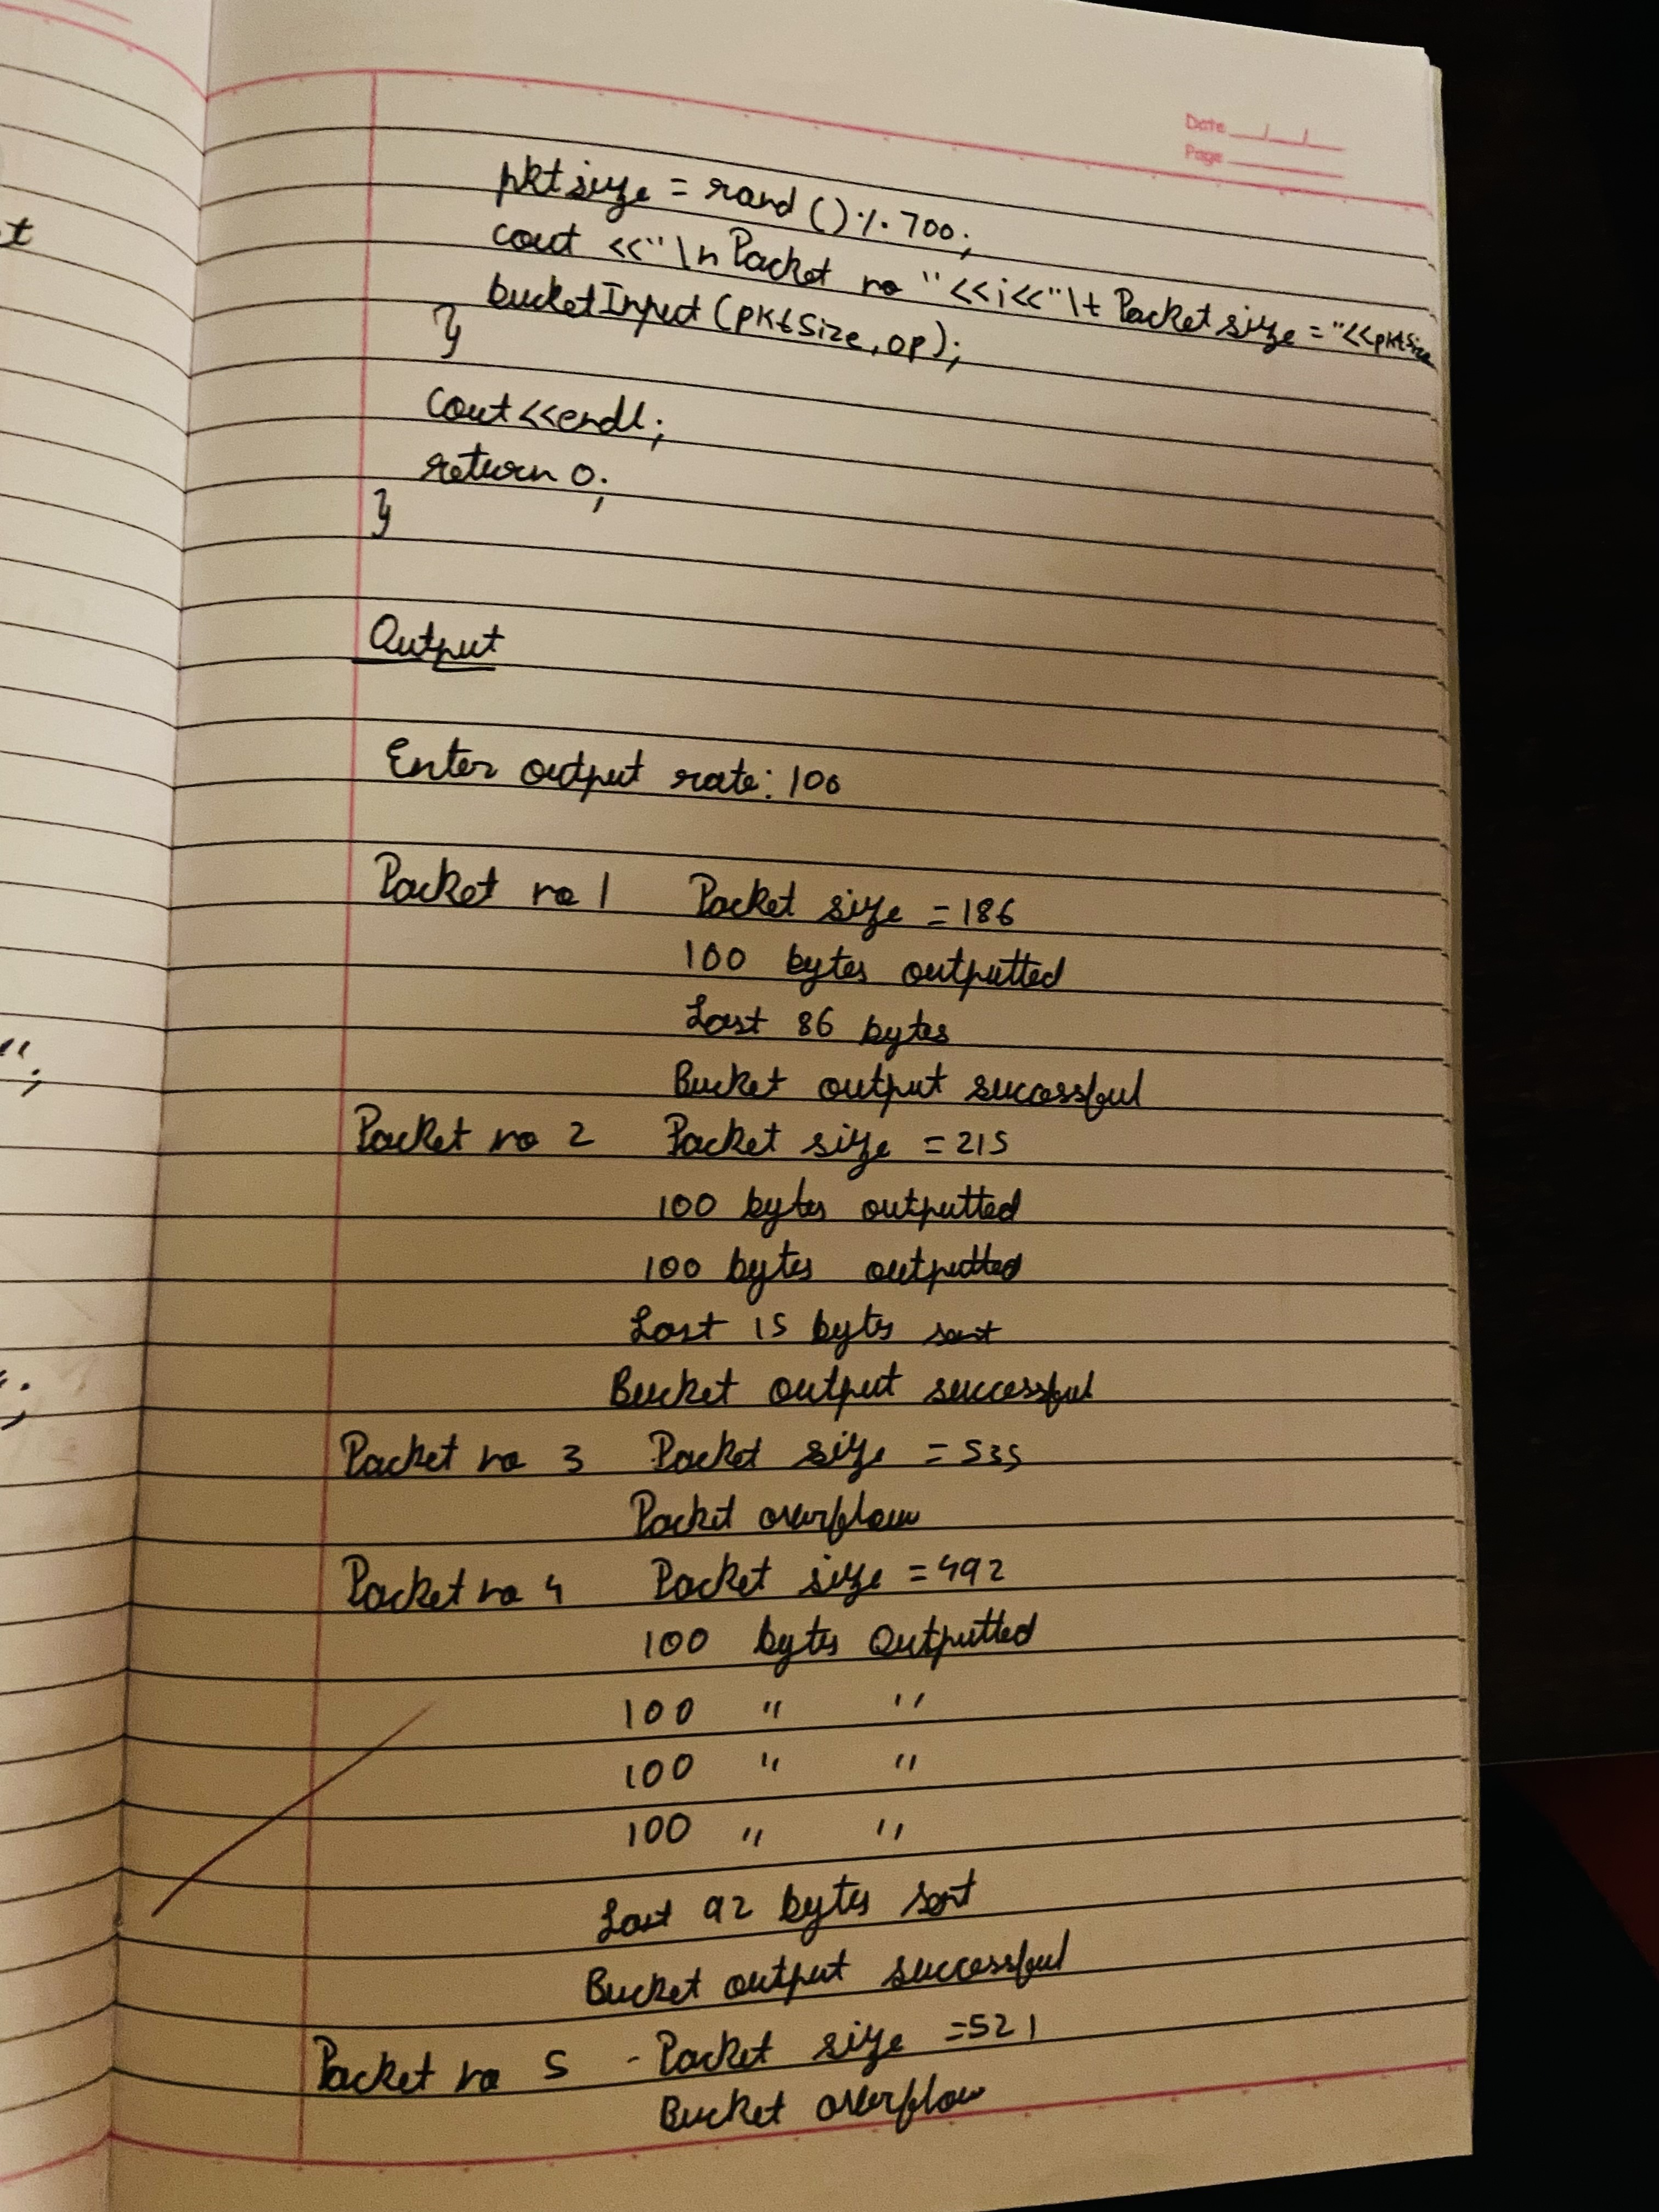 Date
Page
pktsize = rand ()%700;
cout <<"\n Packet no "<<i<<"\t Packet size = "<<pktSize
bucketInput (pktSize, op);
}
cout<<endl;
return 0;
}
Output
Enter output rate: 100
Packet no 1 Packet size = 186
100 bytes outputted
Last 86 bytes
Bucket output successful
Packet no 2 Packet size = 215
100 bytes outputted
100 bytes outputted
Last 15 bytes sent
Bucket output successful
Packet no 3 Packet size = 535
Packet overflow
Packet no 4 Packet size = 492
100 bytes Outputted
100 " "
100 " "
100 " "
Last 92 bytes sent
Bucket output successful
Packet no 5 - Packet size = 521
Bucket overflow